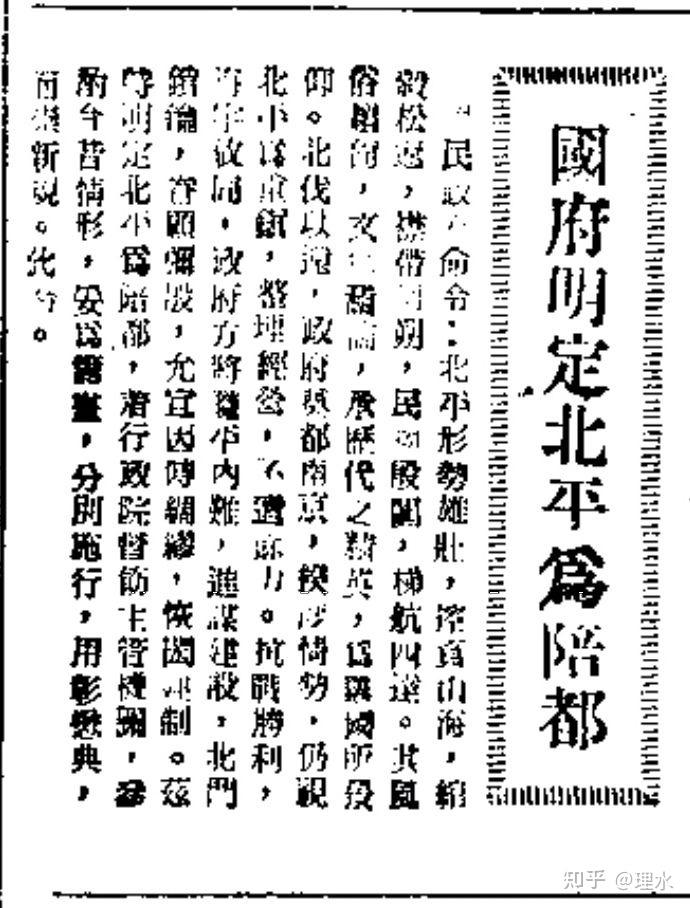 國府明定北平爲陪都
民政府命令：北平形勢雄壯，控山海，綰
轂松遼，襟帶朔，民殷闐，梯航四達。其風
俗趨尚，文，承歷代之精英，爲與國所
仰。北伐以還，政府奠都南京，揆度情勢，仍視
北平爲重鎮，整理經營，不遺餘力。抗戰勝利，
海宇同，政府方將平內難，進謀建設，北門
鎖鑰，眷顧彌殷，允宜因時綢繆，恢閎制。茲
特明定北平爲陪都，着行政院督飭主管機關，參
酌今昔情形，妥爲籌畫，分別施行，用彰懋典，
而新規。此令。
知乎 @理水